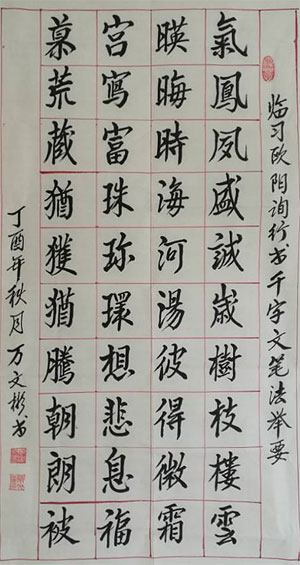 临习欧阳询行书千字文笔法举要
氣鳳夙盛誠歳樹枝樓雲
暎晦時海河湯彼得微霜
宫寫富珠珎環想悲息福
慕荒蔵猶獲猶騰朝朗被
丁酉年秋月万文彬书